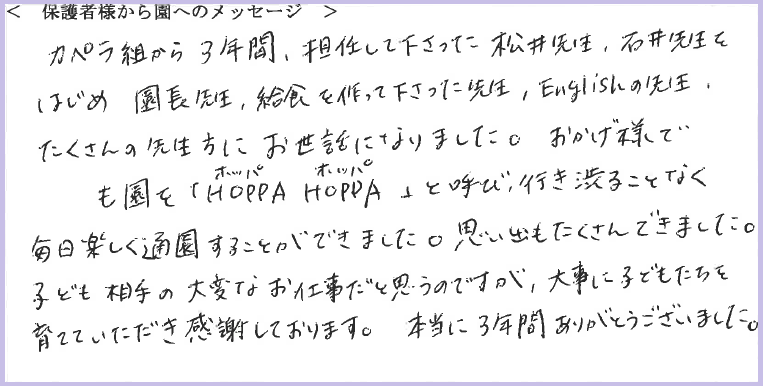 ＜ 保護者様から園へのメッセージ ＞
カペラ組から3年間、担任して下さった松井先生、石井先生を
はじめ 園長先生、給食を作って下さった先生、Englishの先生、
たくさんの先生方にお世話になりました。おかげ様で
ホッパ ホッパ
も園を「HOPPA HOPPA」と呼び、行き渋ることなく
毎日楽しく通園することができました。思い出もたくさんできました。
子ども相手の大変なお仕事だと思うのですが、大事に子どもたちを
育てていただき感謝しております。 本当に3年間ありがとうございました。